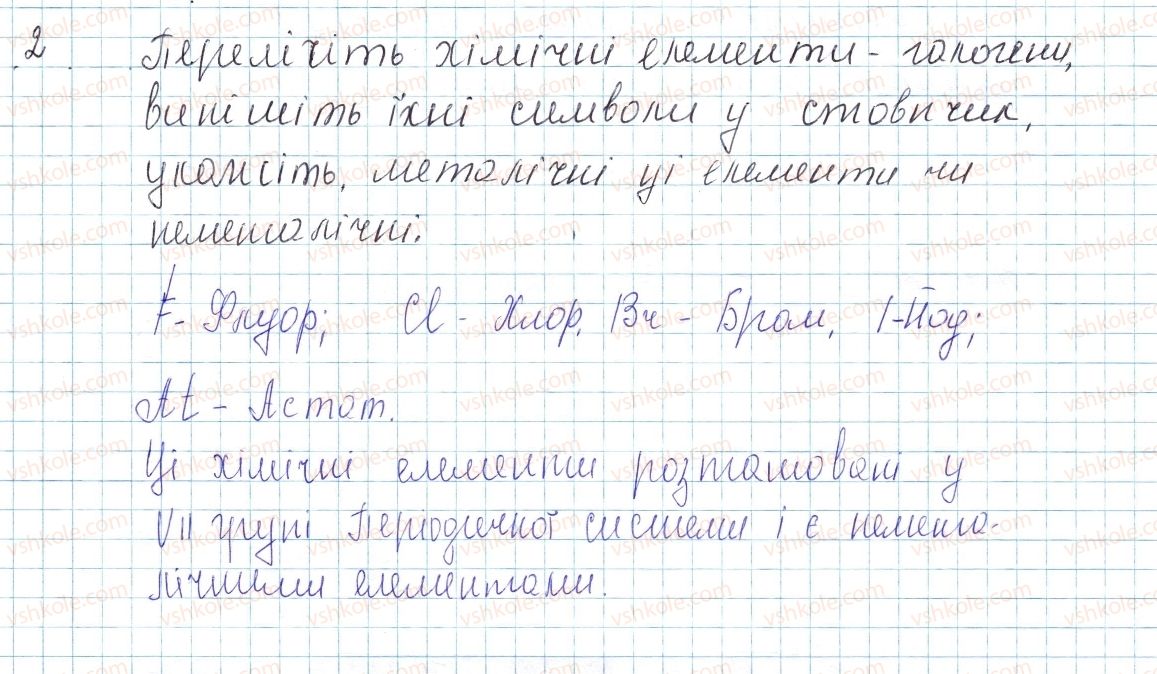 2. Перелічіть хімічні елементи - галогени,
випішіть їхні символи у стовпчик,
укажіть, металічні ці елементи чи
неметалічні.
F - Флуор; Cl - Хлор, Br - Бром, I - Йод;
At - Астат.
Ці хімічні елементи розташовані у
VII групі Періодичної системи і є немета-
лічними елементами.